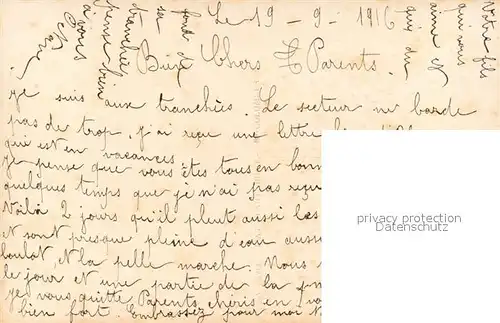 Le 19 - 9 - 1916
Bien Chers Parents.
Je suis aux tranchées. Le secteur ne barde
pas de trop, j'ai reçue une lettre
qui est en vacances.
Je pense que vous êtes tous en bonn
quelques temps que je n'ai pas reçu
Voilà 2 jours qu'il pleut aussi les
et sont presque pleine d'eau aussi
boulot et la pelle marche. Nous
le jour et une partie de la
Je vous quitte Parents chéris en
bien fort. Embrassez pour moi
Votre fils
qui vous
aime et
qui du
fond de
sa
tranchée
pense bien
à vous
privacy protection
Datenschutz